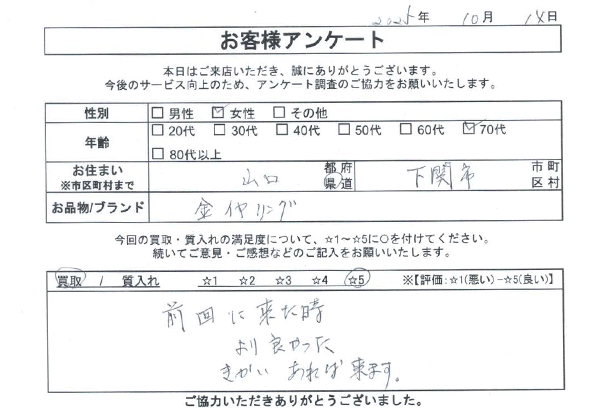 2025年 10月 14日
お客様アンケート
本日はご来店いただき、誠にありがとうございます。
今後のサービス向上のため、アンケート調査のご協力をお願いいたします。
性別 □ 男性 ☑ 女性 □ その他
年齢 □ 20代 □ 30代 □ 40代 □ 50代 □ 60代 ☑ 70代
□ 80代以上
お住まい ※市区町村まで 山口 都府県道 下関市 市町区村
お品物/ブランド 金イヤリング
今回の買取・質入れの満足度について、☆1～☆5に○を付けてください。
続いてご意見・ご感想などのご記入をお願いいたします。
買取 / 質入れ ☆1 ☆2 ☆3 ☆4 ☆5 ※【評価:☆1(悪い)-☆5(良い)】
前回に来た時
より良かった
きかい あれば 来ます。
ご協力いただきありがとうございました。